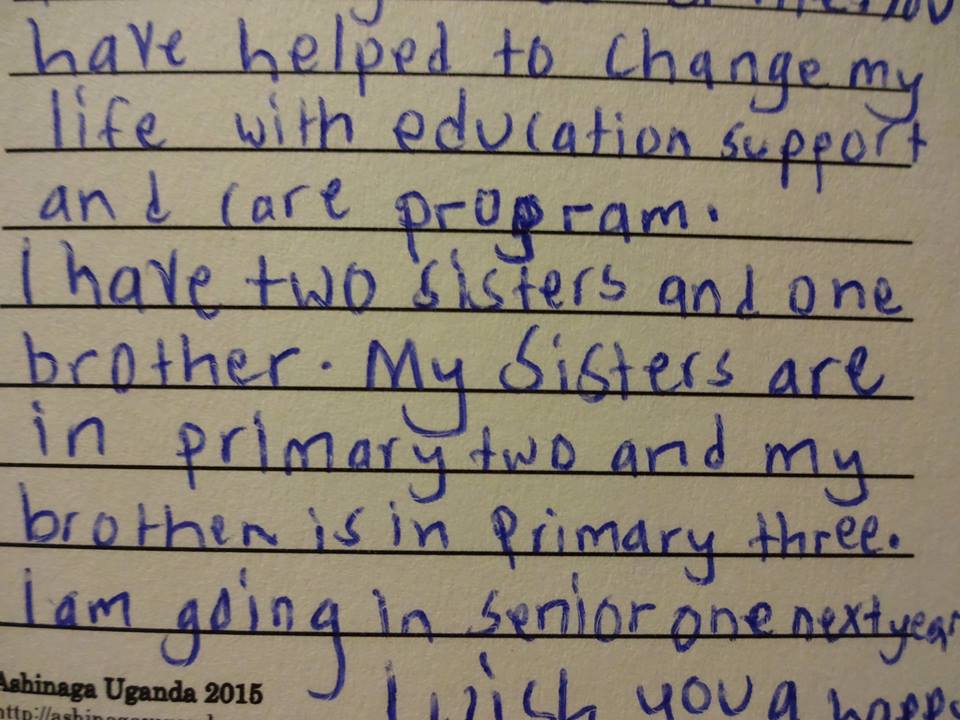 have helped to change my
life with education support
and care program.
I have two sisters and one
brother. My Sisters are
in primary two and my
brother is in primary three.
I am going in senior one next year
Ashinaga Uganda 2015
I wish you a